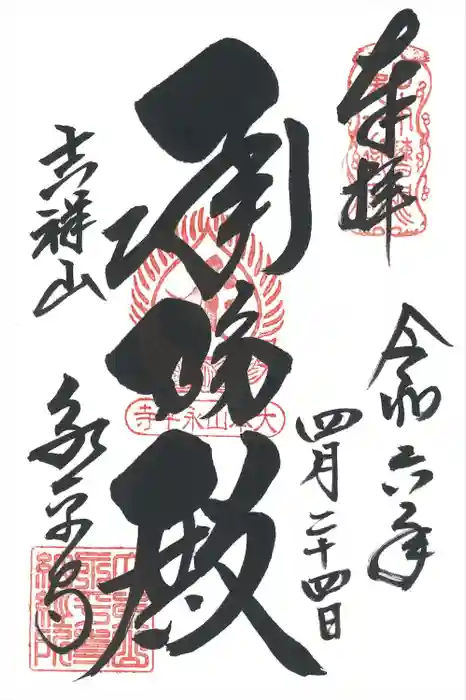 奉拝
令和六年
四月二十四日
承陽殿
大本山永平寺
吉祥山
永平寺